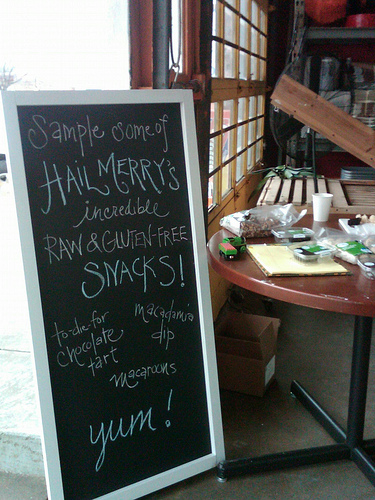 Sample some of
HAIL MERRY'S
incredible
RAW & GLUTEN-FREE
SNACKS!
to-die-for
chocolate
tart
macadamia
dip
macaroons
yum!